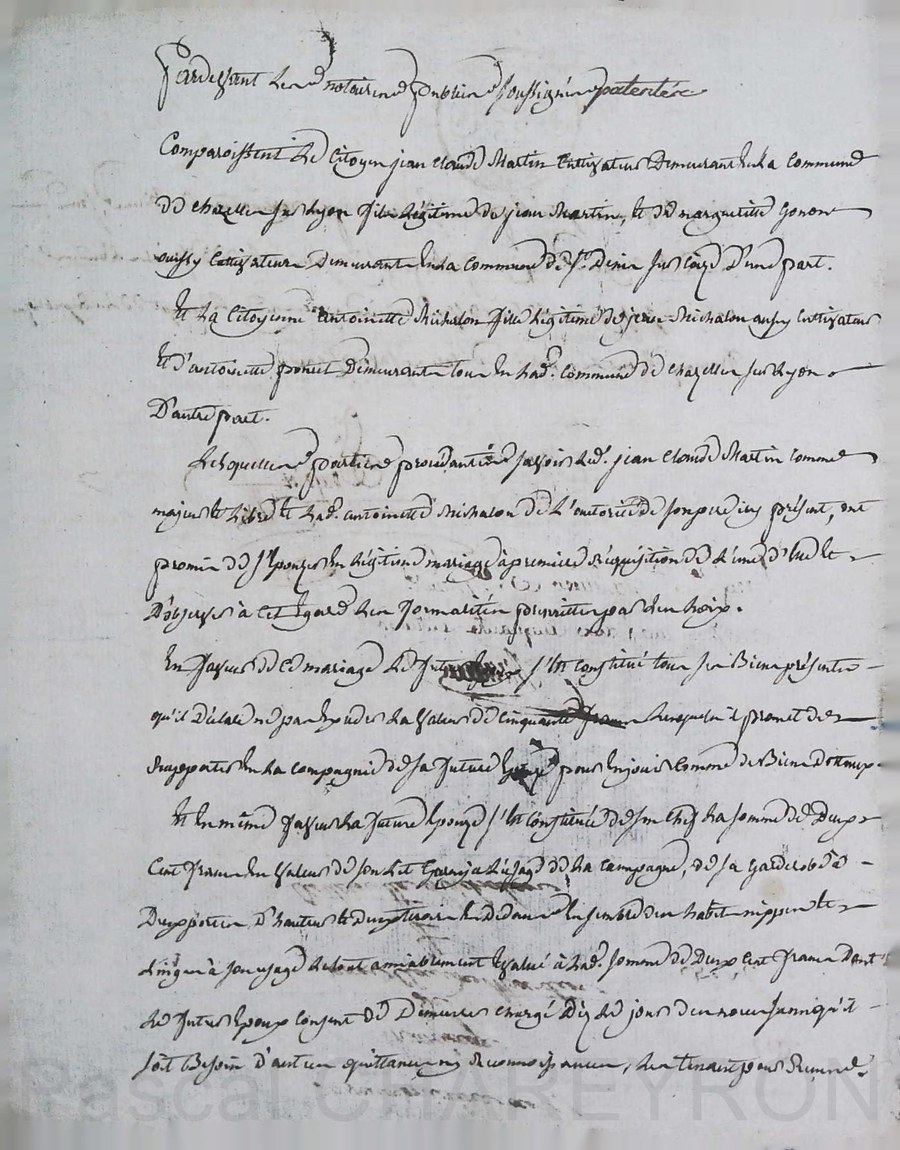 Pardevant les notaires publics soussignés patentés
Comparoissent le Citoyen jean Claude Martin Cultivateur Demeurant En la Commune
de Chazelles sur Lyon fils Légitime de jean Martin, et de margueritte Gonon
aussy Cultivateurs Demeurants En la Commune de St. Denis sur Coize D'une part.
Et La Citoyenne antoinette Michalon fille Légitime de jean Michalon aussy Cultivateur
Et d'antoinette poncet Demeurants tous En lad. Commune de Chazelles sur Lyon
D'autre part.
Lesquelles parties procedantes savoir led. jean Claude Martin Comme
majeur et Libre et Lad. antoinette Michalon de L'autorité de son pere icy présent, ont
promis de s'Epouzer En Légitime mariage à premiere Réquisition de L'une d'Elles et
D'observer à Cet Egard Les formalités prescrittes par les Loix.
En faveur de Ce mariage Le futur s'Est Constitué tous ses Biens présents
qu'il Déclare ne pas Exceder La valeur de Cinquante francs Lesquels il promet de
Raporter En La Compagnie de sa future pour En jouir Comme de Biens Dottaux.
Et En même faveur La future Epouze s'Est Constituée de son Chef La somme de Deux
Cent francs En valeur de son Lit Garny à L'usage de La Campagne, de sa Garderobe à
Deux portes D'hauteur et Deux tiroirs En dedans Ensemble des habits nippes et
Linges à son usage Le tout amiablement Evalué à Lad. somme de Deux Cent francs Dont
Le futur Epoux Consent de Demeurer Chargé Dez Le jour des noces sans qu'il
soit Besoin D'autres quittances ny Reconnoissances, Les tenant pour
Pascal CHAREYRON